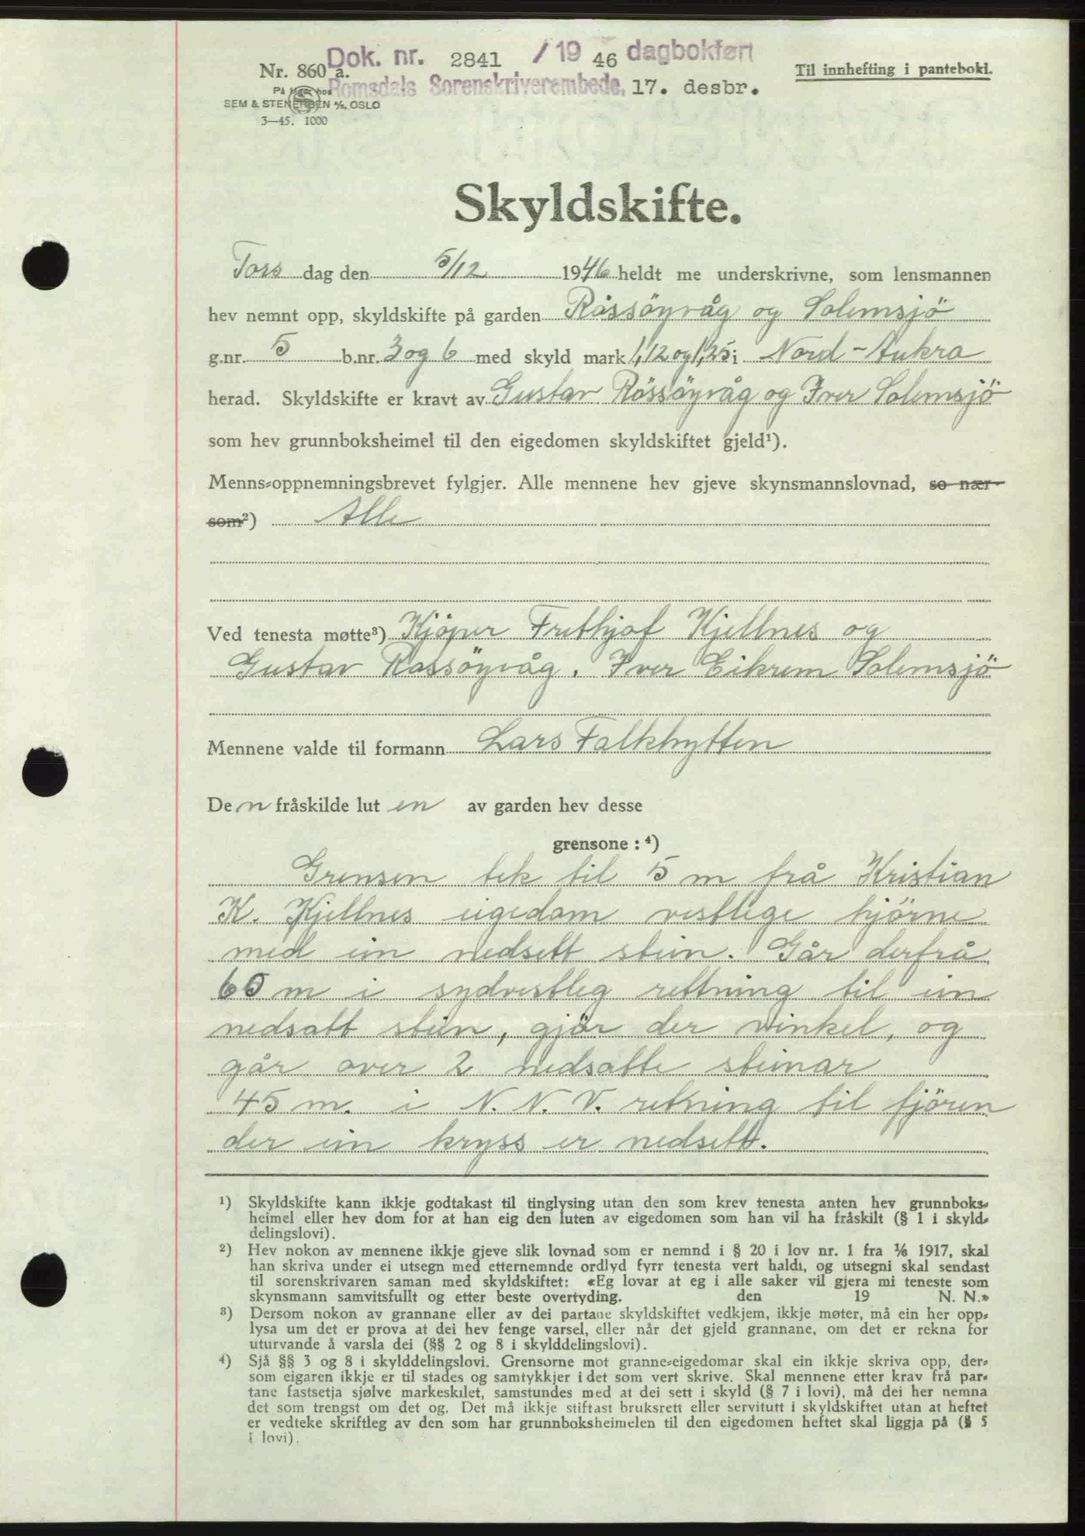 Dok. nr. 2841 / 19 46 dagbokført
Nr. 860 a.
Til innhefting i pantebokl.
Romsdals Sorenskriverembede, 17. desbr.
SEM & STENERSEN A/S, OSLO
3—45. 1000
Skyldskifte.
Tors dag den 5/12 1946 heldt me underskrivne, som lensmannen
hev nemnt opp, skyldskifte på garden Røssöyvåg og Solemsjö
g.nr. 5 b.nr. 3 og 6 med skyld mark 1,12 og 1,25 i Nord-Aukra
herad. Skyldskifte er kravt av Gustav Røssöyvåg og Iver Solemsjö
som hev grunnboksheimel til den eigedomen skyldskiftet gjeld¹).
Menns-oppnemningsbrevet fylgjer. Alle mennene hev gjeve skynsmannslovnad, so nær-
som²) Alle
Ved tenesta møtte³) Kjöper Frithjof Kjellnes og
Gustav Rossöyvåg. Iver Eikrem Solemsjö
Mennene valde til formann Lars Falkhytten
Den fråskilde lut en av garden hev desse
grensone : ⁴)
Grensen tek til 5 m frå Kristian
K. Kjellnes eigedom vestlege hjörne
med ein nedsett stein. Går derfrå
60 m i sydvestleg rettning til ein
nedsatt stein, gjör der vinkel, og
går over 2 nedsatte steinar
45 m. i N. N. V. retning til fjören
der ein kryss er nedsett.
¹) Skyldskifte kann ikkje godtakast til tinglysing utan den som krev tenesta anten hev grunnboks-
heimel eller hev dom for at han eig den luten av eigedomen som han vil ha fråskilt (§ 1 i skyld-
delingslovi).
²) Hev nokon av mennene ikkje gjeve slik lovnad som er nemnd i § 20 i lov nr. 1 fra 1/6 1917, skal
han skriva under ei utsegn med etternemnde ordlyd fyrr tenesta vert haldi, og utsegni skal sendast
til sorenskrivaren saman med skyldskiftet: «Eg lovar at eg i alle saker vil gjera mi teneste som
skynsmann samvitsfullt og etter beste overtyding. den 19 N. N.»
³) Dersom nokon av grannane eller av dei partane skyldskiftet vedkjem, ikkje møter, må ein her opp-
lysa um det er prova at dei hev fenge varsel, eller når det gjeld grannane, om det er rekna for
uturvande å varsla dei (§§ 2 og 8 i skylddelingslovi).
⁴) Sjå §§ 3 og 8 i skylddelingslovi. Grensorne mot granne-eigedomar skal ein ikkje skriva opp, der-
som eigaren ikkje er til stades og samtykkjer i det som vert skrive. Skal mennene etter krav frå par-
tane fastsetja sjølve markeskilet, samstundes med at dei sett i skyld (§ 7 i lovi), må dei her nemna
det som trengst om det og. Det må ikkje stiftast bruksrett eller servitutt i skyldskiftet utan at heftet
er vedteke skriftleg av den som har grunnboksheimelen til den eigedomen heftet skal liggja på (§ 5
i lovi).